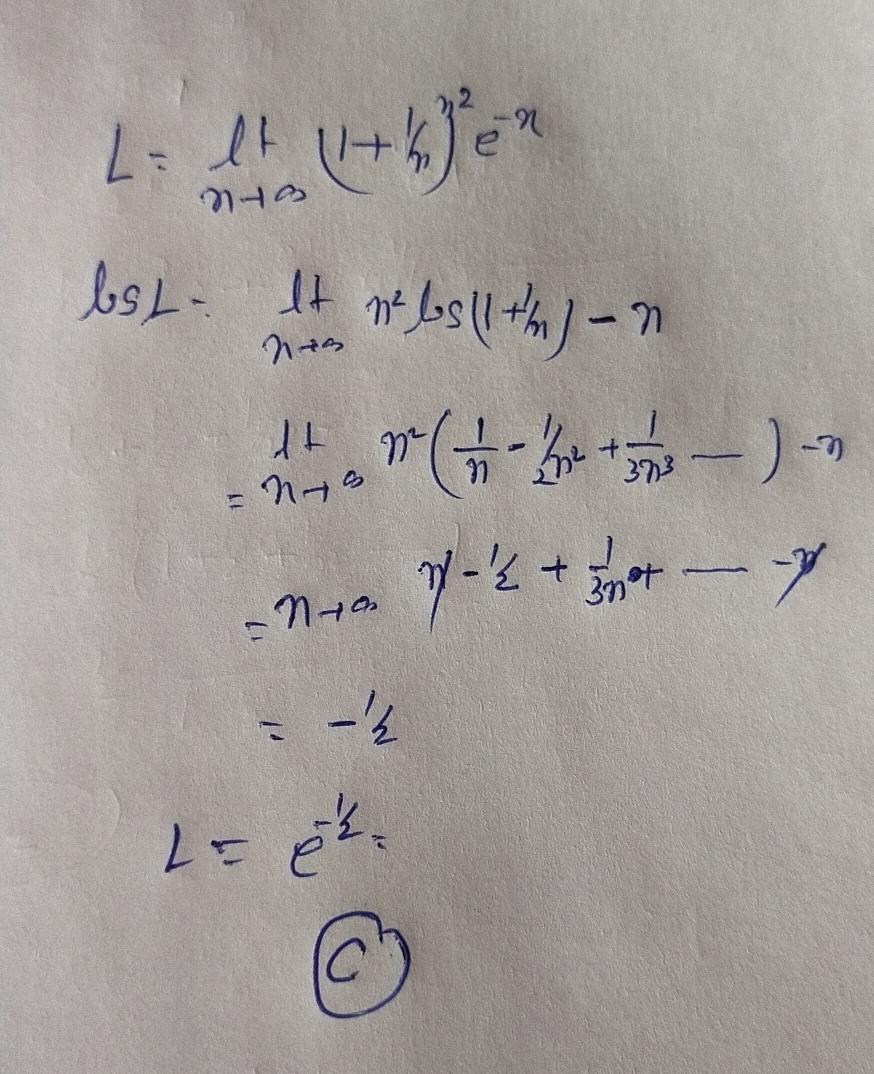 L = lt n→∞ (1+1/n)^n² e^-n
log L = lt n→∞ n² log(1+1/n) - n
= lt n→∞ n² (1/n - 1/2n² + 1/3n³ — ) - n
= n→∞ n - 1/2 + 1/3n + — - n
= -1/2
L = e^-1/2
C